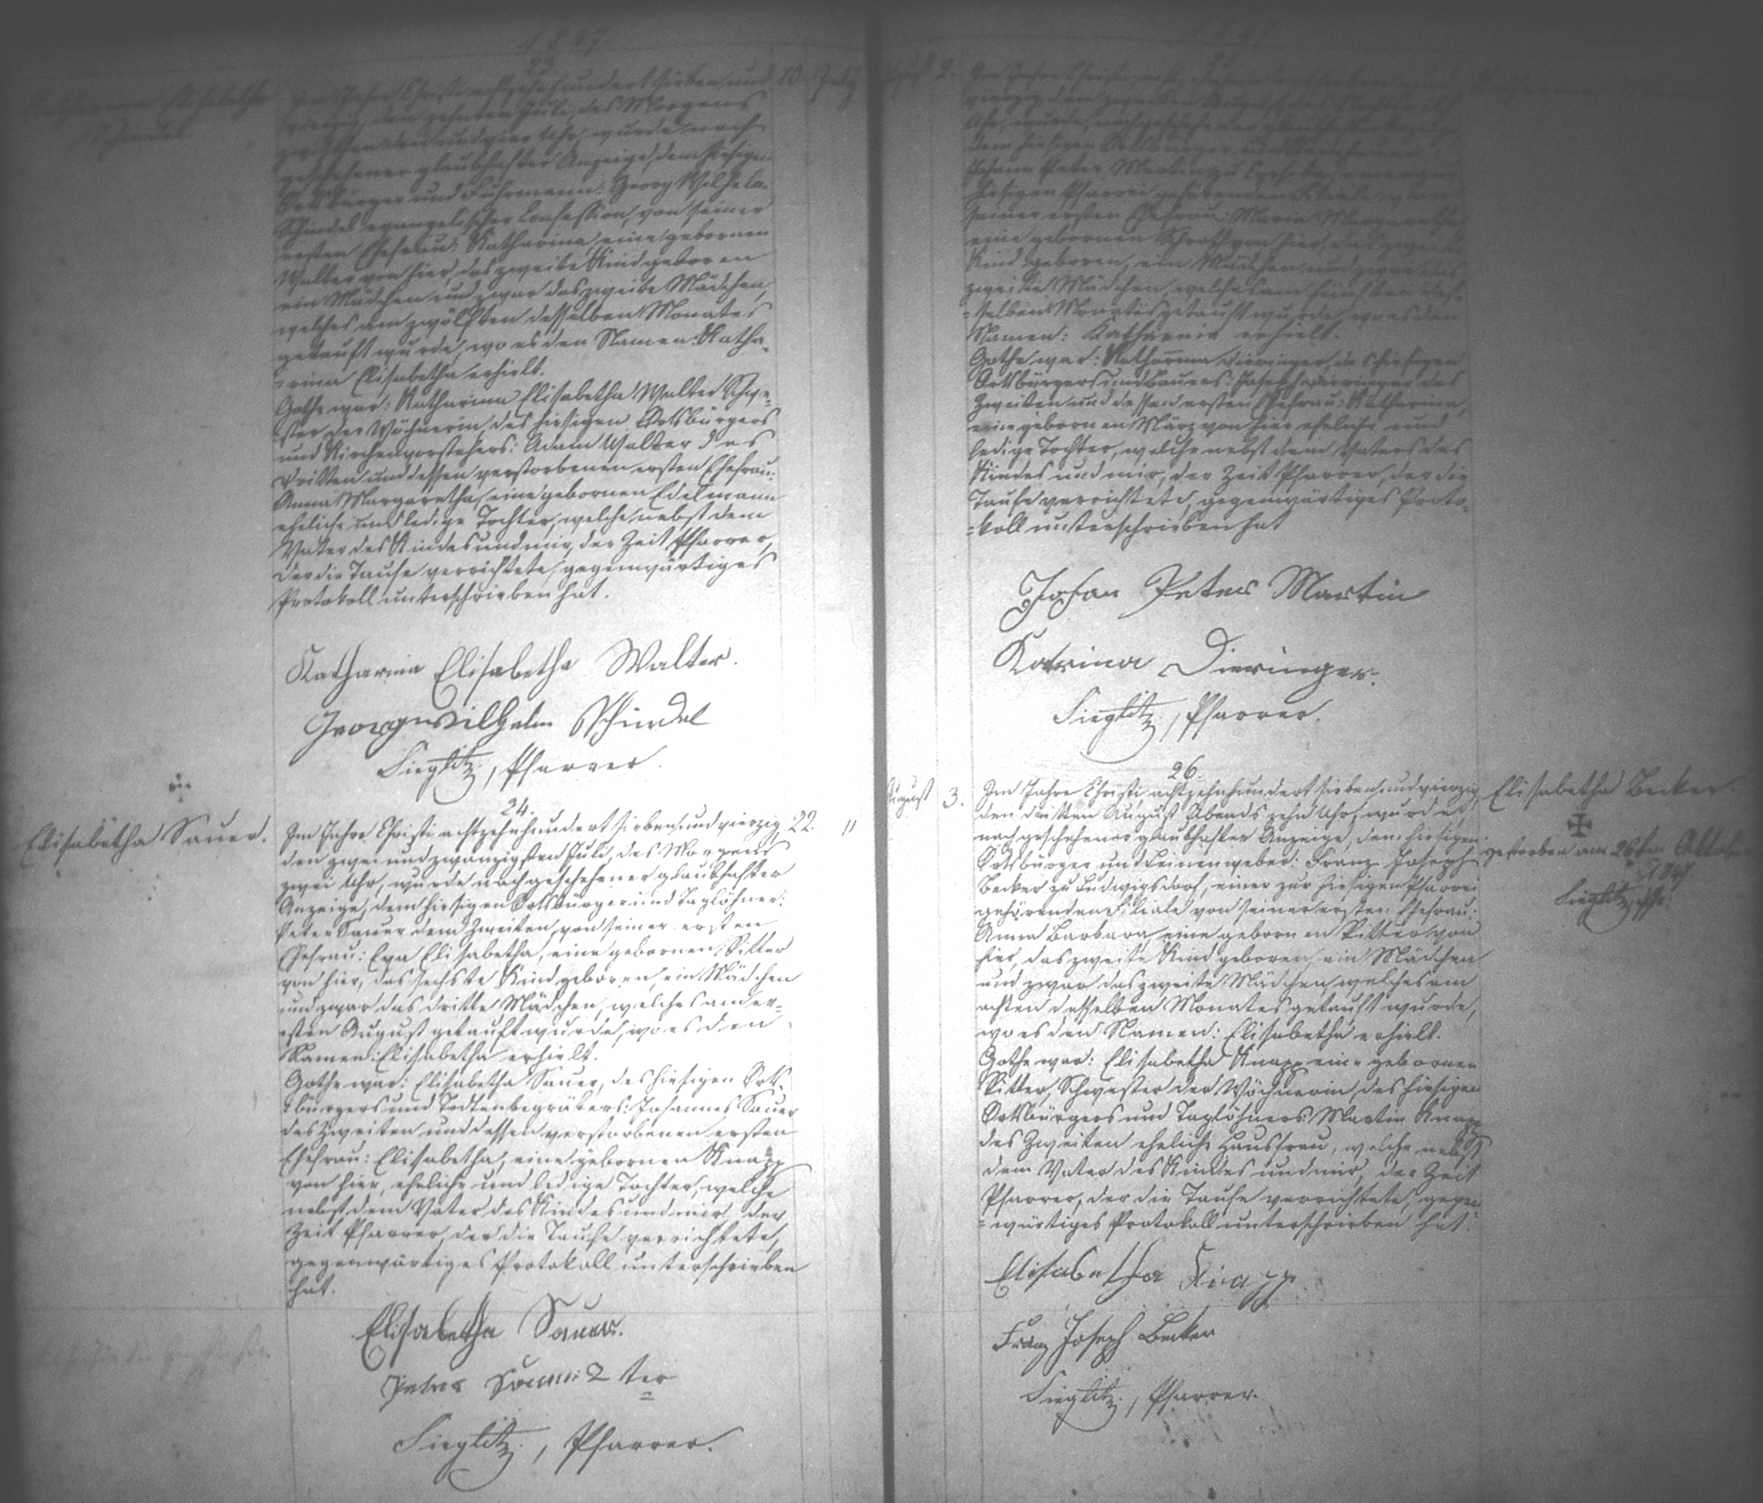 1847
23.
Katharina Elisabetha
Schindel
Im Jahre Christi achtzehnhundert sieben und 10 July
vierzig, den zehnten Juli, des Morgens
zwischen drei und vier Uhr, wurde nach
geschehener glaubhafter Anzeige, dem hiesigen
Ortsbürger und Fuhrmann: Georg Wilhelm
Schindel evangelischer Confession, von seiner
ersten Ehefrau: Katharina, eine gebornen
Walter von hier, das zweite Kind geboren
ein Mädchen und zwar das zweite Mädchen,
welches am zwölften desselben Monates
getauft wurde, wo es den Namen: Katha-
-rina Elisabetha erhielt.
Gothe war: Katharina Elisabetha Walter Schwe-
ster der Wöchnerin, des hiesigen Ortsbürgers
und Kirchenvorstehers: Adam Walter des
dritten und dessen verstorbenen ersten Ehefrau:
Anna Margaretha, eine gebornen Edelmann
eheliche und ledige Tochter, welche nebst dem
Vater des Kindes und mir, der Zeit Pfarrer,
der die Taufe verrichtete, gegenwärtiges
Protokoll unterschrieben hat.
Katharina Elisabetha Walter.
Georg Wilhelm Schindel
Sieglitz, Pfarrer.
24.
Elisabetha Sauer.
Im Jahre Christi achtzehnhundert sieben und vierzig 22. "
den zwei und zwanzigsten Juli, des Morgens
zwei Uhr, wurde nach geschehener glaubhafter
Anzeige, dem hiesigen Ortsbürger und Taglöhner:
Peter Sauer dem Zweiten, von seiner ersten
Ehefrau: Eva Elisabetha, eine gebornen Ritter
von hier, das sechste Kind geboren, ein Mädchen
und zwar das dritte Mädchen, welches am er-
sten August getauft wurde, wo es den
Namen: Elisabetha erhielt.
Gothe war: Elisabetha Sauer, des hiesigen Orts-
bürgers und Todtenbegräbers: Johannes Sauer
des Zweiten und dessen verstorbenen ersten
Ehefrau: Elisabetha, eine gebornen Knapp
von hier, eheliche und ledige Tochter, welche
nebst dem Vater des Kindes und mir, der
Zeit Pfarrer, der die Taufe verrichtete,
gegenwärtiges Protokoll unterschrieben
hat.
Elisabetha Sauer.
Peter Sauer 2 ter
Sieglitz, Pfarrer.
2. Im Jahre Christi
vierzig, den zweiten August
Uhr, wurde, nach geschehener glaubhafter
dem hiesigen Ortsbürger
Johann Peter Martin zu
hiesigen Pfarrei gehörenden Filiale, von
seiner ersten Ehefrau: Maria Margaretha
eine gebornen von hier, das zweite
Kind geboren, ein Mädchen und zwar das
zweite Mädchen, welches am fünften des-
=selben Monates getauft wurde, wo es den
Namen: Katharina erhielt.
Gothe war: Katharina Dieringer, des hiesigen
Ortsbürgers und Bauers: Joseph Dieringer des
Zweiten und dessen ersten Ehefrau: Katharina,
eine gebornen März von hier eheliche und
ledige Tochter, welche nebst dem Vater des
Kindes und mir, der Zeit Pfarrer, der die
Taufe verrichtete, gegenwärtiges Proto-
=koll unterschrieben hat
Johan Peter Martin
Katrina Dieringer.
Sieglitz, Pfarrer.
26.
August 3. Im Jahre Christi achtzehnhundert sieben und vierzig
den dritten August Abends zehn Uhr, wurde
nach geschehener glaubhafter Anzeige, dem hiesigen
Ortsbürger und Leinenweber: Franz Joseph
Becker zu Ludwigsdorf, einer zur hiesigen Pfarrei
gehörenden Filiale von seiner ersten Ehefrau:
Anna Barbara, eine gebornen Ritter von
hier, das zweite Kind geboren, ein Mädchen
und zwar das zweite Mädchen welches am
achten desselben Monates getauft wurde,
wo es den Namen: Elisabetha erhielt.
Gothe war: Elisabetha Knapp eine gebornen
Ritter, Schwester der Wöchnerin, des hiesigen
Ortsbürgers und Taglöhners: Martin Knapp
des Zweiten eheliche Hausfrau, welche nebst
dem Vater des Kindes und mir, der Zeit
Pfarrer, der die Taufe verrichtete, gegen-
=wärtiges Protokoll unterschrieben hat.
Elisabetha Knapp.
Franz Joseph Becker
Sieglitz, Pfarrer.
Elisabetha Becker.
gestorben am 26ten Oktober
Sieglitz, Pfr.